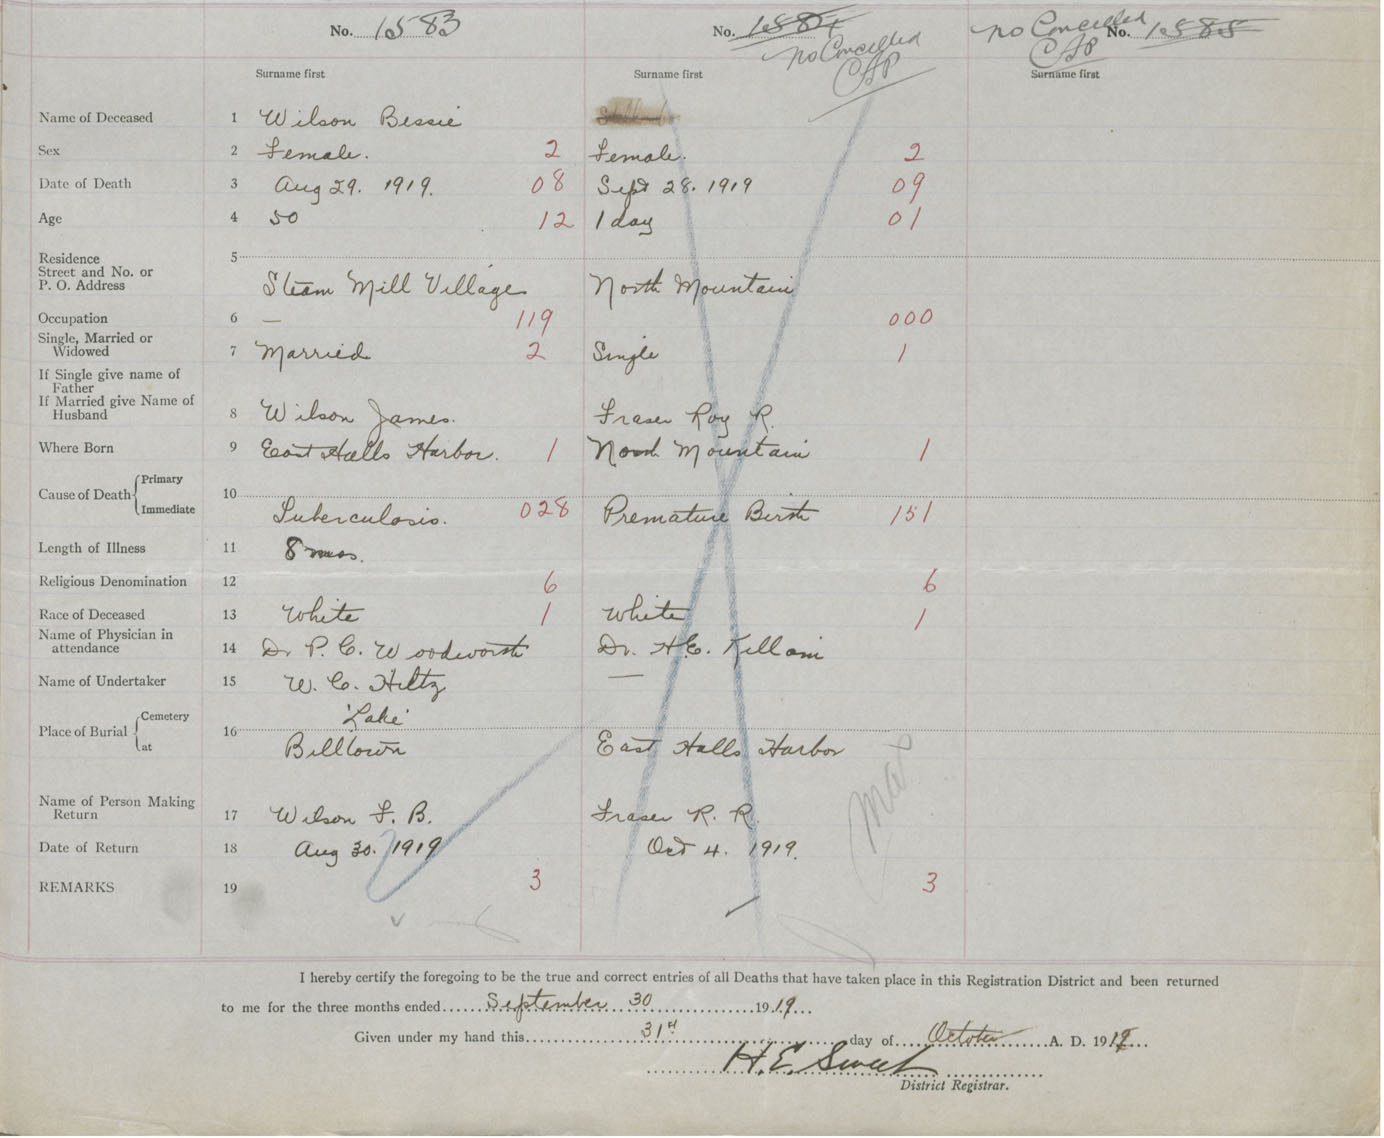 No. 1583 No. 1584 no Cancelled No. 1585
no Cancelled CAP
CAP
Surname first Surname first Surname first
Name of Deceased 1 Wilson Bessie
Sex 2 Female. 2 Female. 2
Date of Death 3 Aug 29. 1919. 08 Sept 28. 1919 09
Age 4 50 12 1 day 01
Residence 5
Street and No. or
P. O. Address Steam Mill Village North Mountain
Occupation 6 — 119 000
Single, Married or
Widowed 7 Married 2 Single 1
If Single give name of
Father
If Married give Name of
Husband 8 Wilson James. Fraser Roy R.
Where Born 9 East Halls Harbor. 1 North Mountain 1
Cause of Death Primary 10
Immediate Tuberculosis. 028 Premature Birth 151
Length of Illness 11 8 mos.
Religious Denomination 12 6 6
Race of Deceased 13 White 1 White 1
Name of Physician in
attendance 14 Dr P. C. Woodworth Dr. H.E. Killam
Name of Undertaker 15 W. C. Hiltz —
Place of Burial Cemetery 16 'Lake'
at Billtown East Halls Harbor
Name of Person Making
Return 17 Wilson F. B. Fraser R. R.
Date of Return 18 Aug 30. 1919 Oct 4. 1919.
REMARKS 19 3 3
I hereby certify the foregoing to be the true and correct entries of all Deaths that have taken place in this Registration District and been returned
to me for the three months ended September 30 1919
Given under my hand this 31st day of October A. D. 1919
H. E. Sweet
District Registrar.